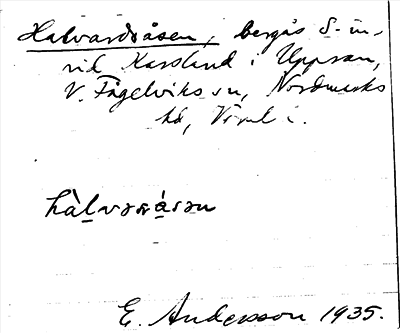 Halvardsåsen, bergås S-in-
vid Karsland i Uppsan,
V. Fågelviks sn, Nordmarks
hd, Vrml i.
hàlvaṣásan
E. Andersson 1935.